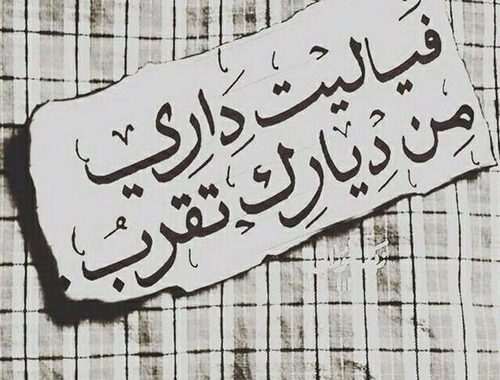 فَياليت دَارِي
مِن دِيارِكِ تقربُ